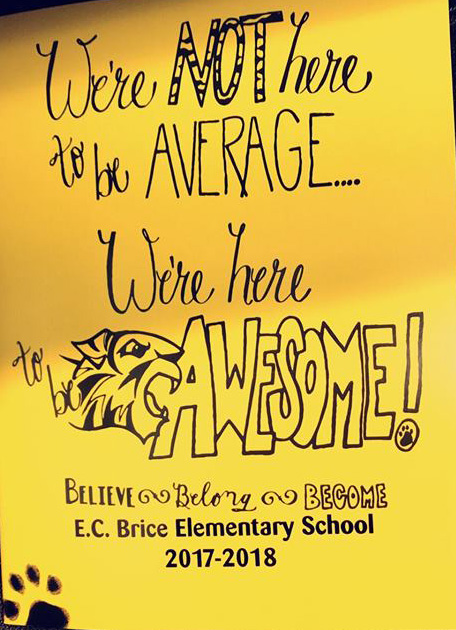 We're NOT here
to be AVERAGE....
We're here
to be AWESOME!
BELIEVE Belong BECOME
E.C. Brice Elementary School
2017-2018